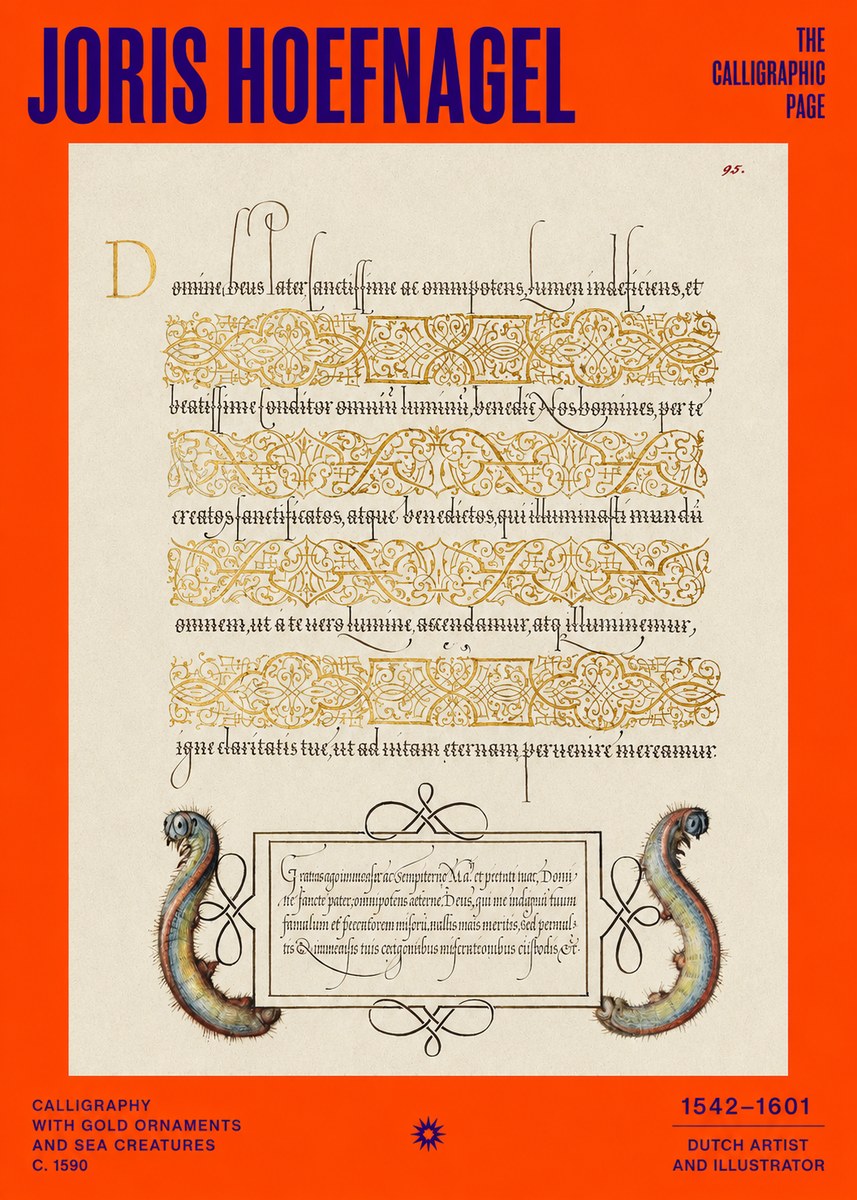 JORIS HOEFNAGEL
THE
CALLIGRAPHIC
PAGE
95.
Domine Deus Pater sanctissime ac omnipotens, Lumen indeficiens, et
beatissime Conditor omniū luminū, benedic Nos homines, per te
creatos sanctificatos, atque benedictos, qui illuminasti mundū
omnem, ut a te vero lumine, ascendamur, atq illuminemur,
igne claritatis tue, ut ad uitam eternam peruenire mereamur.
Gratias ago et pietati tuae, Domi
ne sancte pater, omnipotens aeterne Deus, qui me indignū tuum
famulum et peccatorem meritis, sed
tuis custodis
CALLIGRAPHY
WITH GOLD ORNAMENTS
AND SEA CREATURES
C. 1590
1542–1601
DUTCH ARTIST
AND ILLUSTRATOR